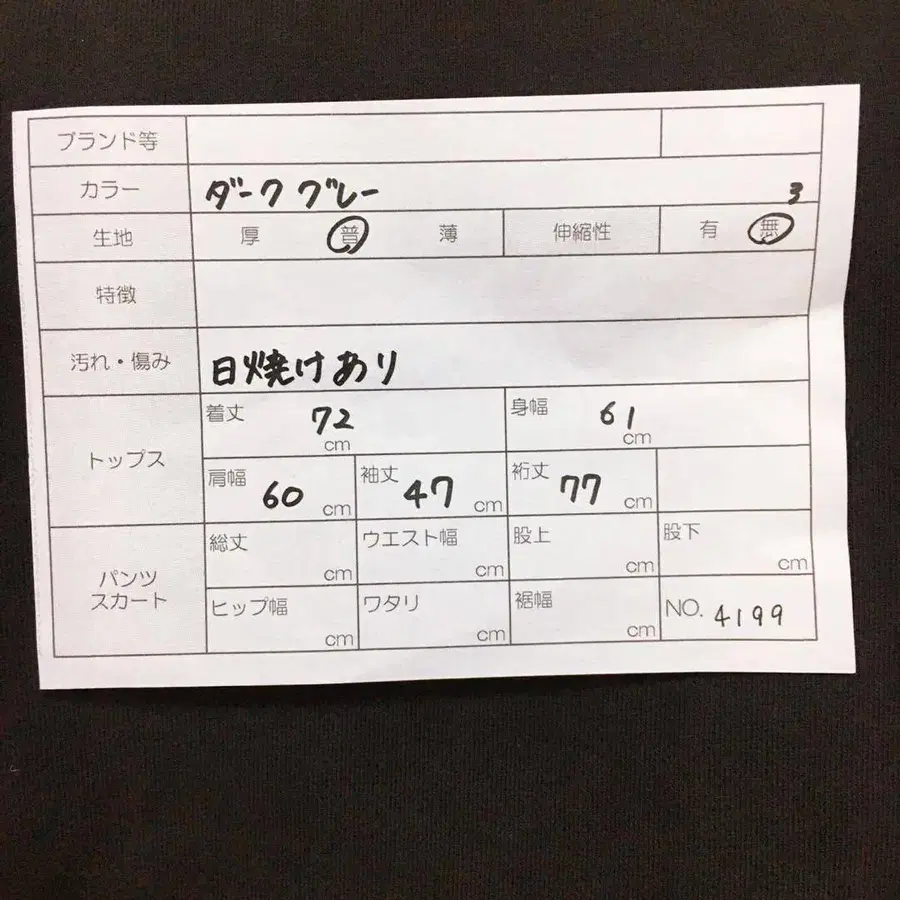 ブランド等
カラー ダークグレー 3
生地 厚 普 薄 伸縮性 有 無
特徴
汚れ・傷み 日焼けあり
トップス
着丈 72 cm 身幅 61 cm
肩幅 60 cm 袖丈 47 cm 裄丈 77 cm
パンツ
スカート
総丈 cm ウエスト幅 cm 股上 cm 股下 cm
ヒップ幅 cm ワタリ cm 裾幅 cm NO. 4199